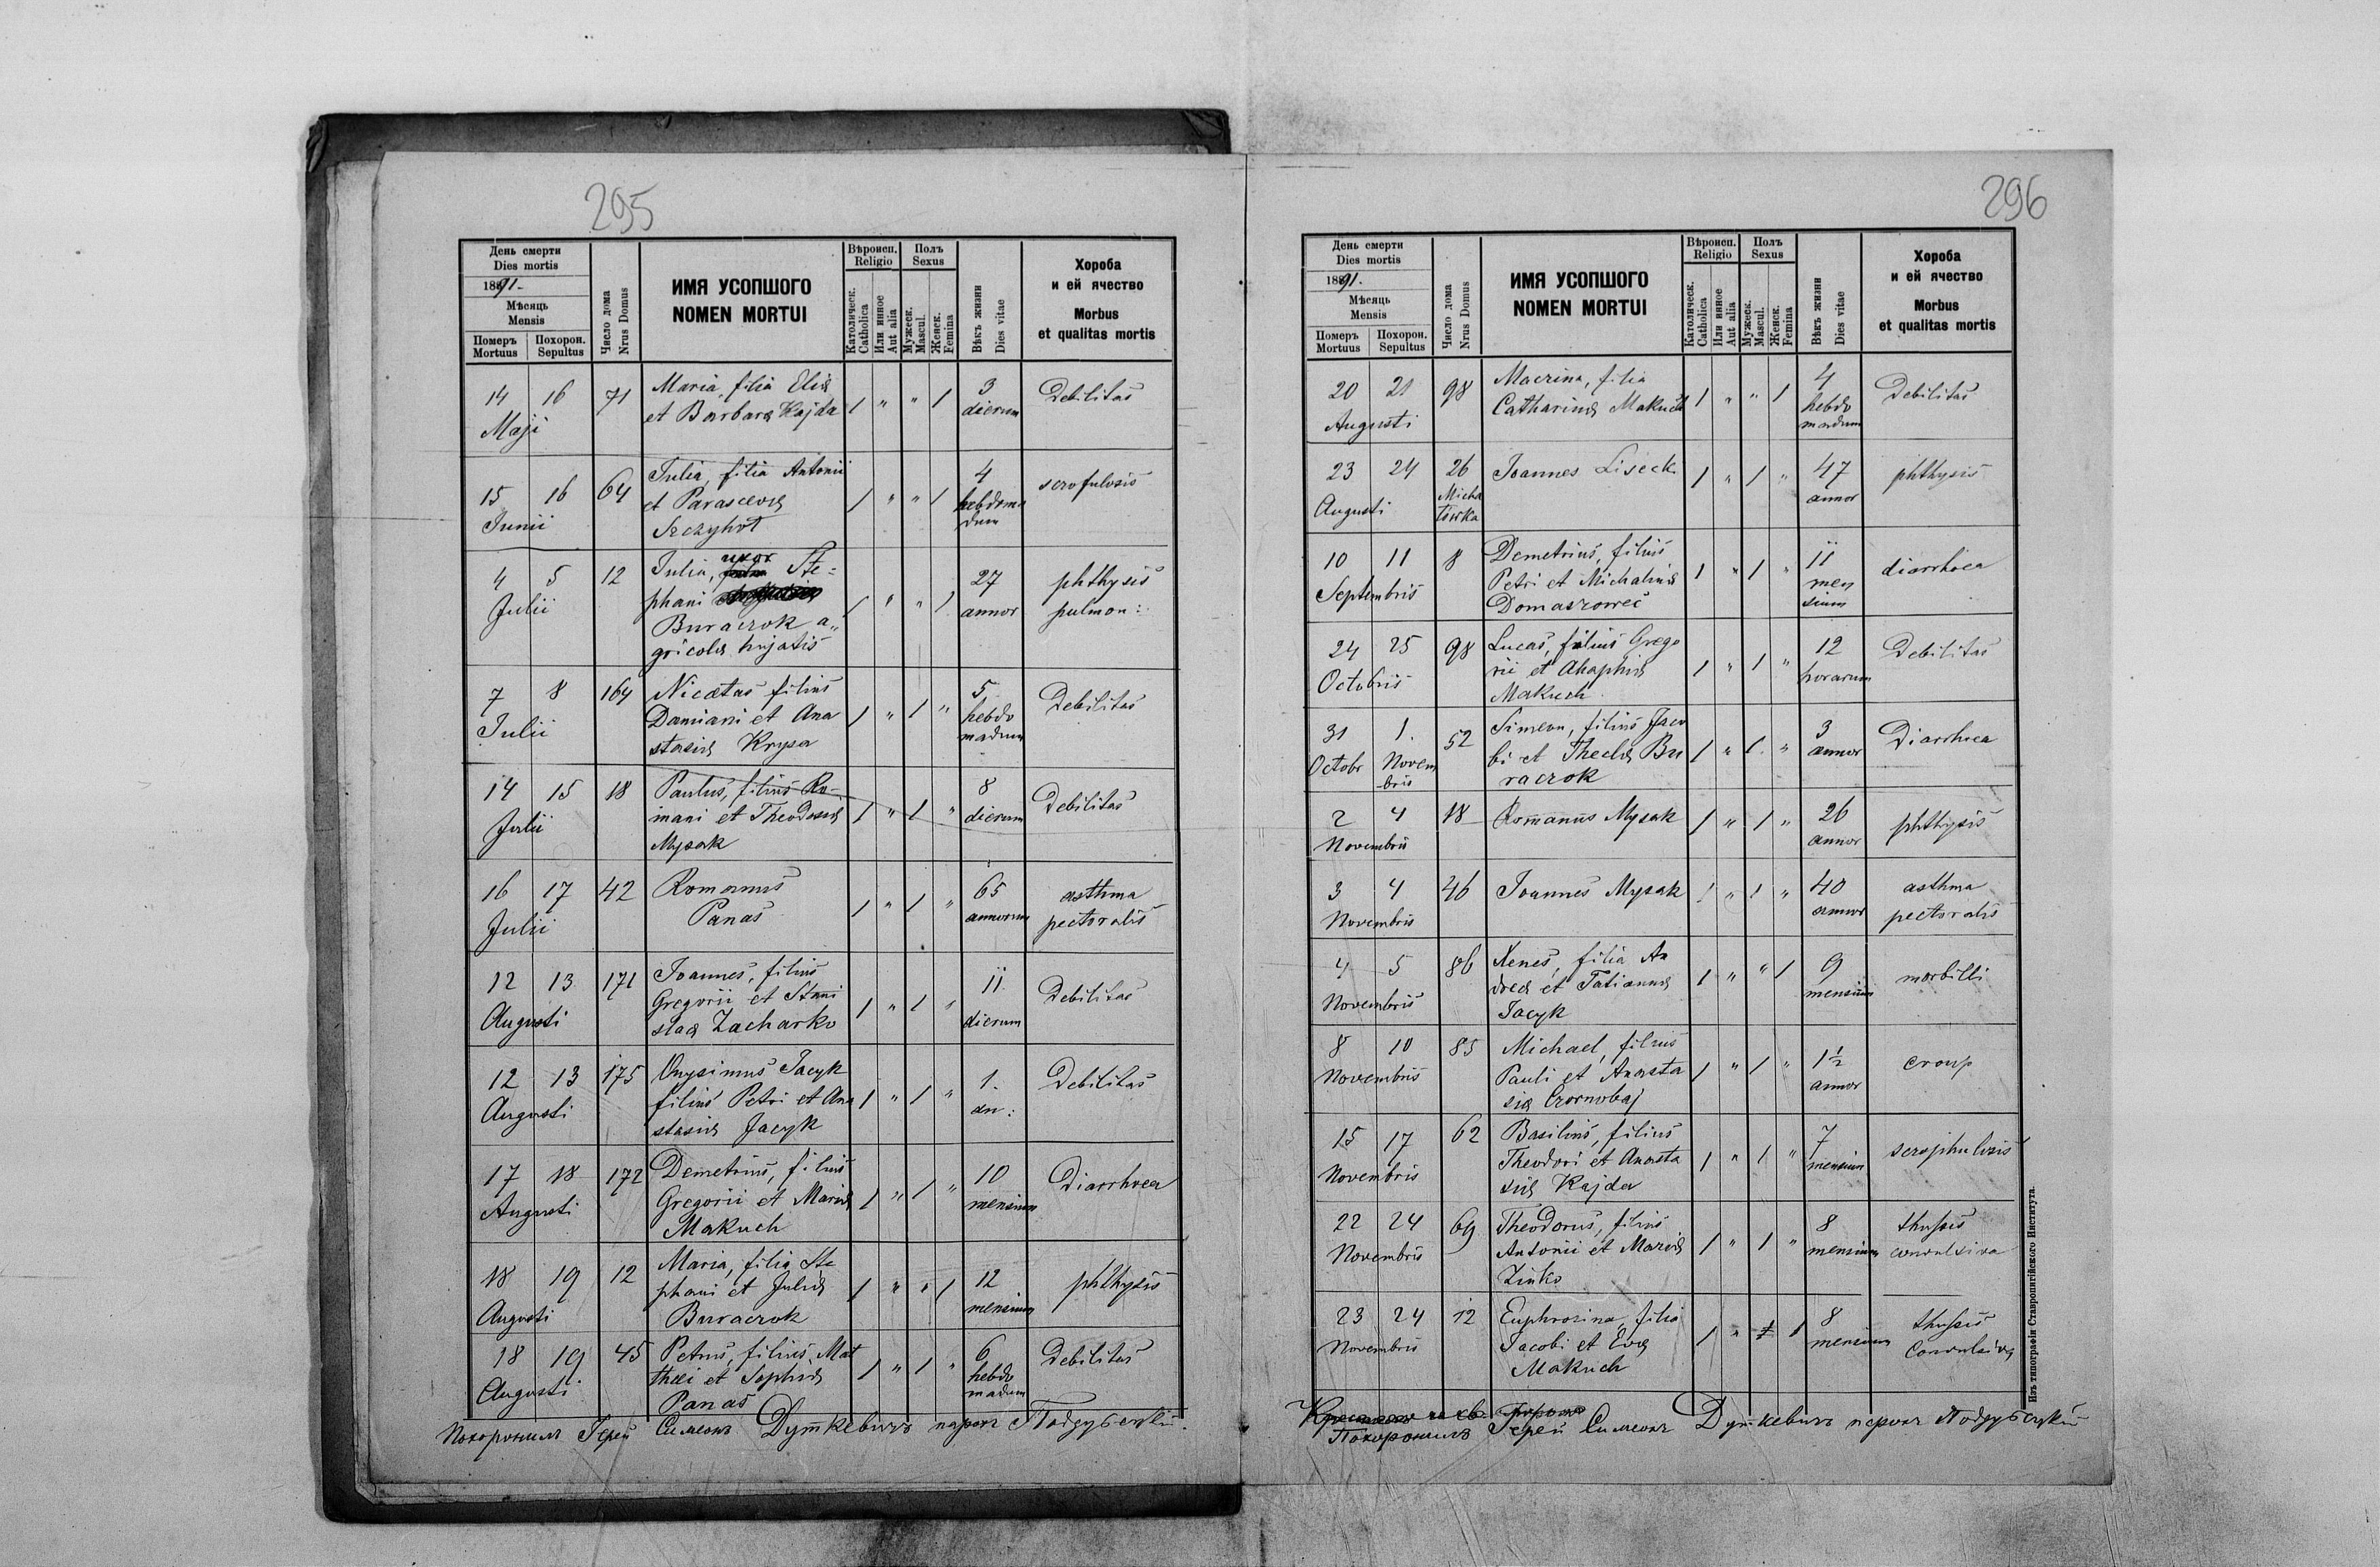 295
День смерти
Dies mortis
1891.
Мѣсяць
Mensis
Померъ
Mortuus
Похорон.
Sepultus
Число дома
Nrus Domus
ИМЯ УСОПШОГО
NOMEN MORTUI
Вѣроисп.
Religio
Католическ.
Catholica
Или инное
Aut alia
Полъ
Sexus
Мужеск.
Mascul.
Женск.
Femina
Вѣкъ жизни
Dies vitae
Хороба
и ей ячество
Morbus
et qualitas mortis
14 16 71 Maria, filia Eliæ 1 " " 1 3 Debilitas
Maji et Barbaræ Kajda dierum
15 16 64 Julia, filia Antonii 1 " " 1 4 scrofulosis
Junii et Parascevæ hebdoma
Sczyhot dum
4 5 12 Julia, uxor Ste= 1 " " 1 27 phthysis
Julii phani annor pulmon:
Buraczok a„
gricolæ hujatis
7 8 164 Nicetas filius 1 " 1 " 5 Debilitas
Julii Damiani et Ana hebdo
stasiæ Krysa madum
14 15 18 Paulus, filius Ro- 1 " 1 " 8 Debilitas
Julii mani et Theodosiæ dierum
Mysak
16 17 42 Romanus 1 " 1 " 65 asthma
Julii Panas annorum pectoralis
12 13 171 Joannes, filius 1 " 1 " 11 Debilitas
Augusti Gregorii et Stani dierum
slaæ Zacharko
12 13 175 Onysimus Jacyk 1 " 1 " 1. Debilitas
Augusti filius Petri et Ana an:
stasiæ Jacyk
17 18 172 Demetrius, filius 1 " 1 " 10 Diarrhoea
Augusti Gregorii et Mariæ mensium
Makuch
18 19 12 Maria, filia Ste 1 " " 1 12 phthysis
Augusti phani et Juliæ mensium
Buraczok
18 19 45 Petrus, filius Mat 1 " 1 " 6 Debilitas
Augusti thæi et Sophiæ hebdo
Panas madum
Похоронилъ Іерей Симеонъ Дуткевичъ парох Поддубецкій.
296
День смерти
Dies mortis
1891.
Мѣсяць
Mensis
Померъ
Mortuus
Похорон.
Sepultus
Число дома
Nrus Domus
ИМЯ УСОПШОГО
NOMEN MORTUI
Вѣроисп.
Religio
Католическ.
Catholica
Или инное
Aut alia
Полъ
Sexus
Мужеск.
Mascul.
Женск.
Femina
Вѣкъ жизни
Dies vitae
Хороба
и ей ячество
Morbus
et qualitas mortis
20 21 98 Macrina, filia 1 " " 1 4 Debilitas
Augusti Catharinæ Makuch hebdo
madum
23 24 26 Joannes Lisecki 1 " 1 " 47 phthysis
Augusti Micha annor
łówka
10 11 8 Demetrius, filius 1 " 1 " 11 diarrhoea
Septembris Petri et Michalinæ men
Domaszowec sium
24 25 98 Lucas, filius Grego 1 " 1 " 12 Debilitas
Octobris rii et Ahaphiæ horarum
Makuch
31 1. 52 Simeon, filius Jaco 1 " 1 " 3 Diarrhoea
Octobr Novem bi et Theclæ Bu annor
bris raczok
2 4 18 Romanus Mysak 1 " 1 " 26 phthysis
Novembris annor
3 4 46 Joannes Mysak 1 " 1 " 40 asthma
Novembris annor pectoralis
4 5 86 Xenes, filia An 1 " " 1 9 morbilli
Novembris dreæ et Tatiannæ mensium
Jacyk
8 10 85 Michael, filius 1 " 1 " 1½ croup
Novembris Pauli et Anasta annor
siæ Czornobaj
15 17 62 Basilius, filius 1 " 1 " 7 scrophulosis
Novembris Theodori et Anasta mensium
siæ Kajda
22 24 69 Theodorus, filius 1 " 1 " 8 thussis
Novembris Antonii et Mariæ mensium convulsiva
Zinko
23 24 12 Euphrosina, filia 1 " 1 8 thussis
Novembris Jacobi et Evæ mensium convulsiva
Makuch
Похоронилъ Іерей Симеонъ Дуткевичъ парох Поддубецкій
Изъ типографіи Ставропигійского Института.